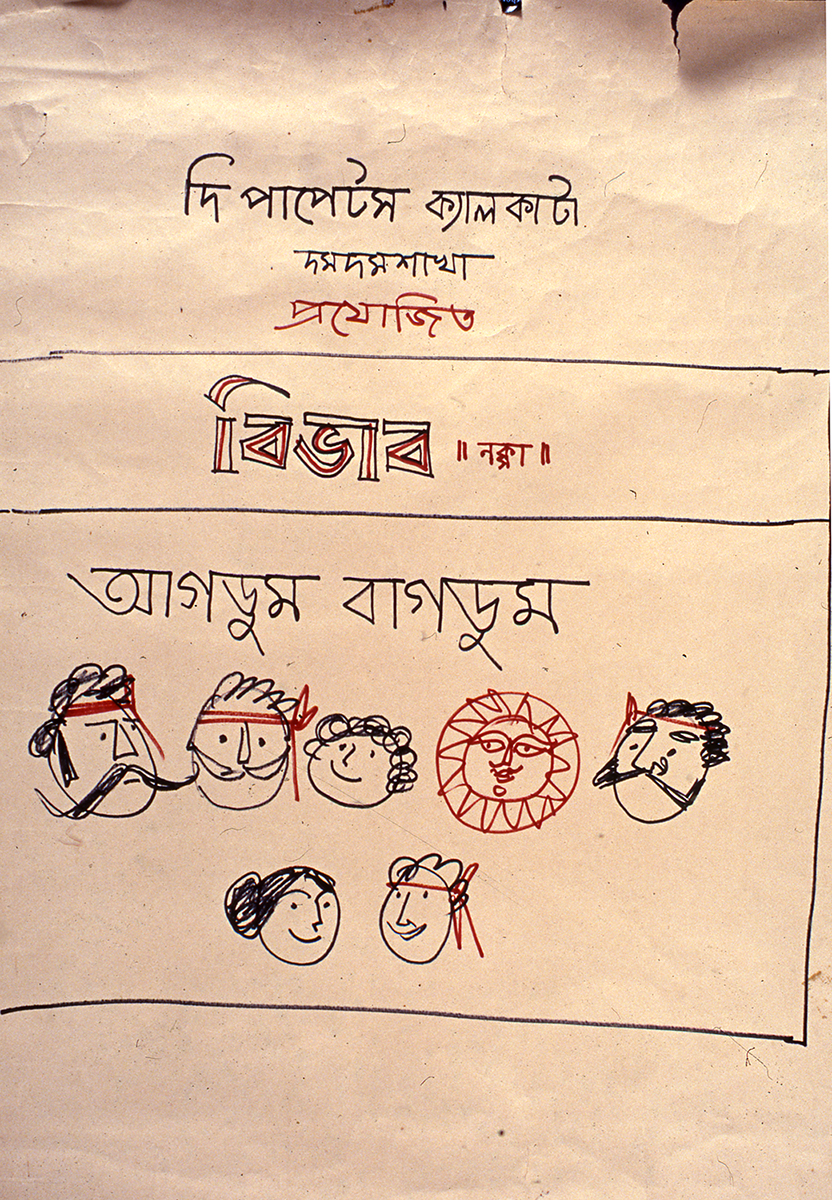 দি পাপেটস ক্যালকাটা
দমদমশাখা
প্রযোজিত
বিভাব ॥ নক্সা ॥
আগডুম বাগডুম